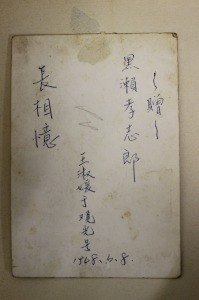 ～贈～
黒瀬孝志郎
長相憶
王淑媛于觀光号
1968.6.8.